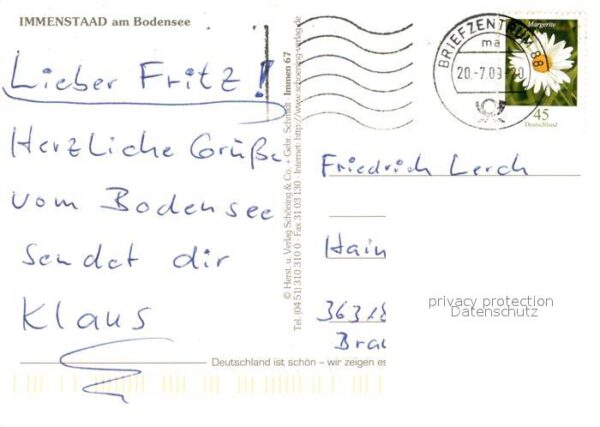 IMMENSTAAD am Bodensee
Lieber Fritz!
Herzliche Grüße
vom Bodensee
sendet dir
Klaus
Deutschland ist schön – wir zeigen es
© Herst. u. Verlag Schöning & Co. + Gebr. Schmidt · Immen 67
Tel. (04 51) 310 310 0 · Fax 31 03 130 · Internet: http://www.schoening-verlag.de
BRIEFZENTRUM 88
ma
20-7.09-20
Margerite
45
Deutschland
Friedrich Lerch
Hain
36318
Brau
privacy protection
Datenschutz